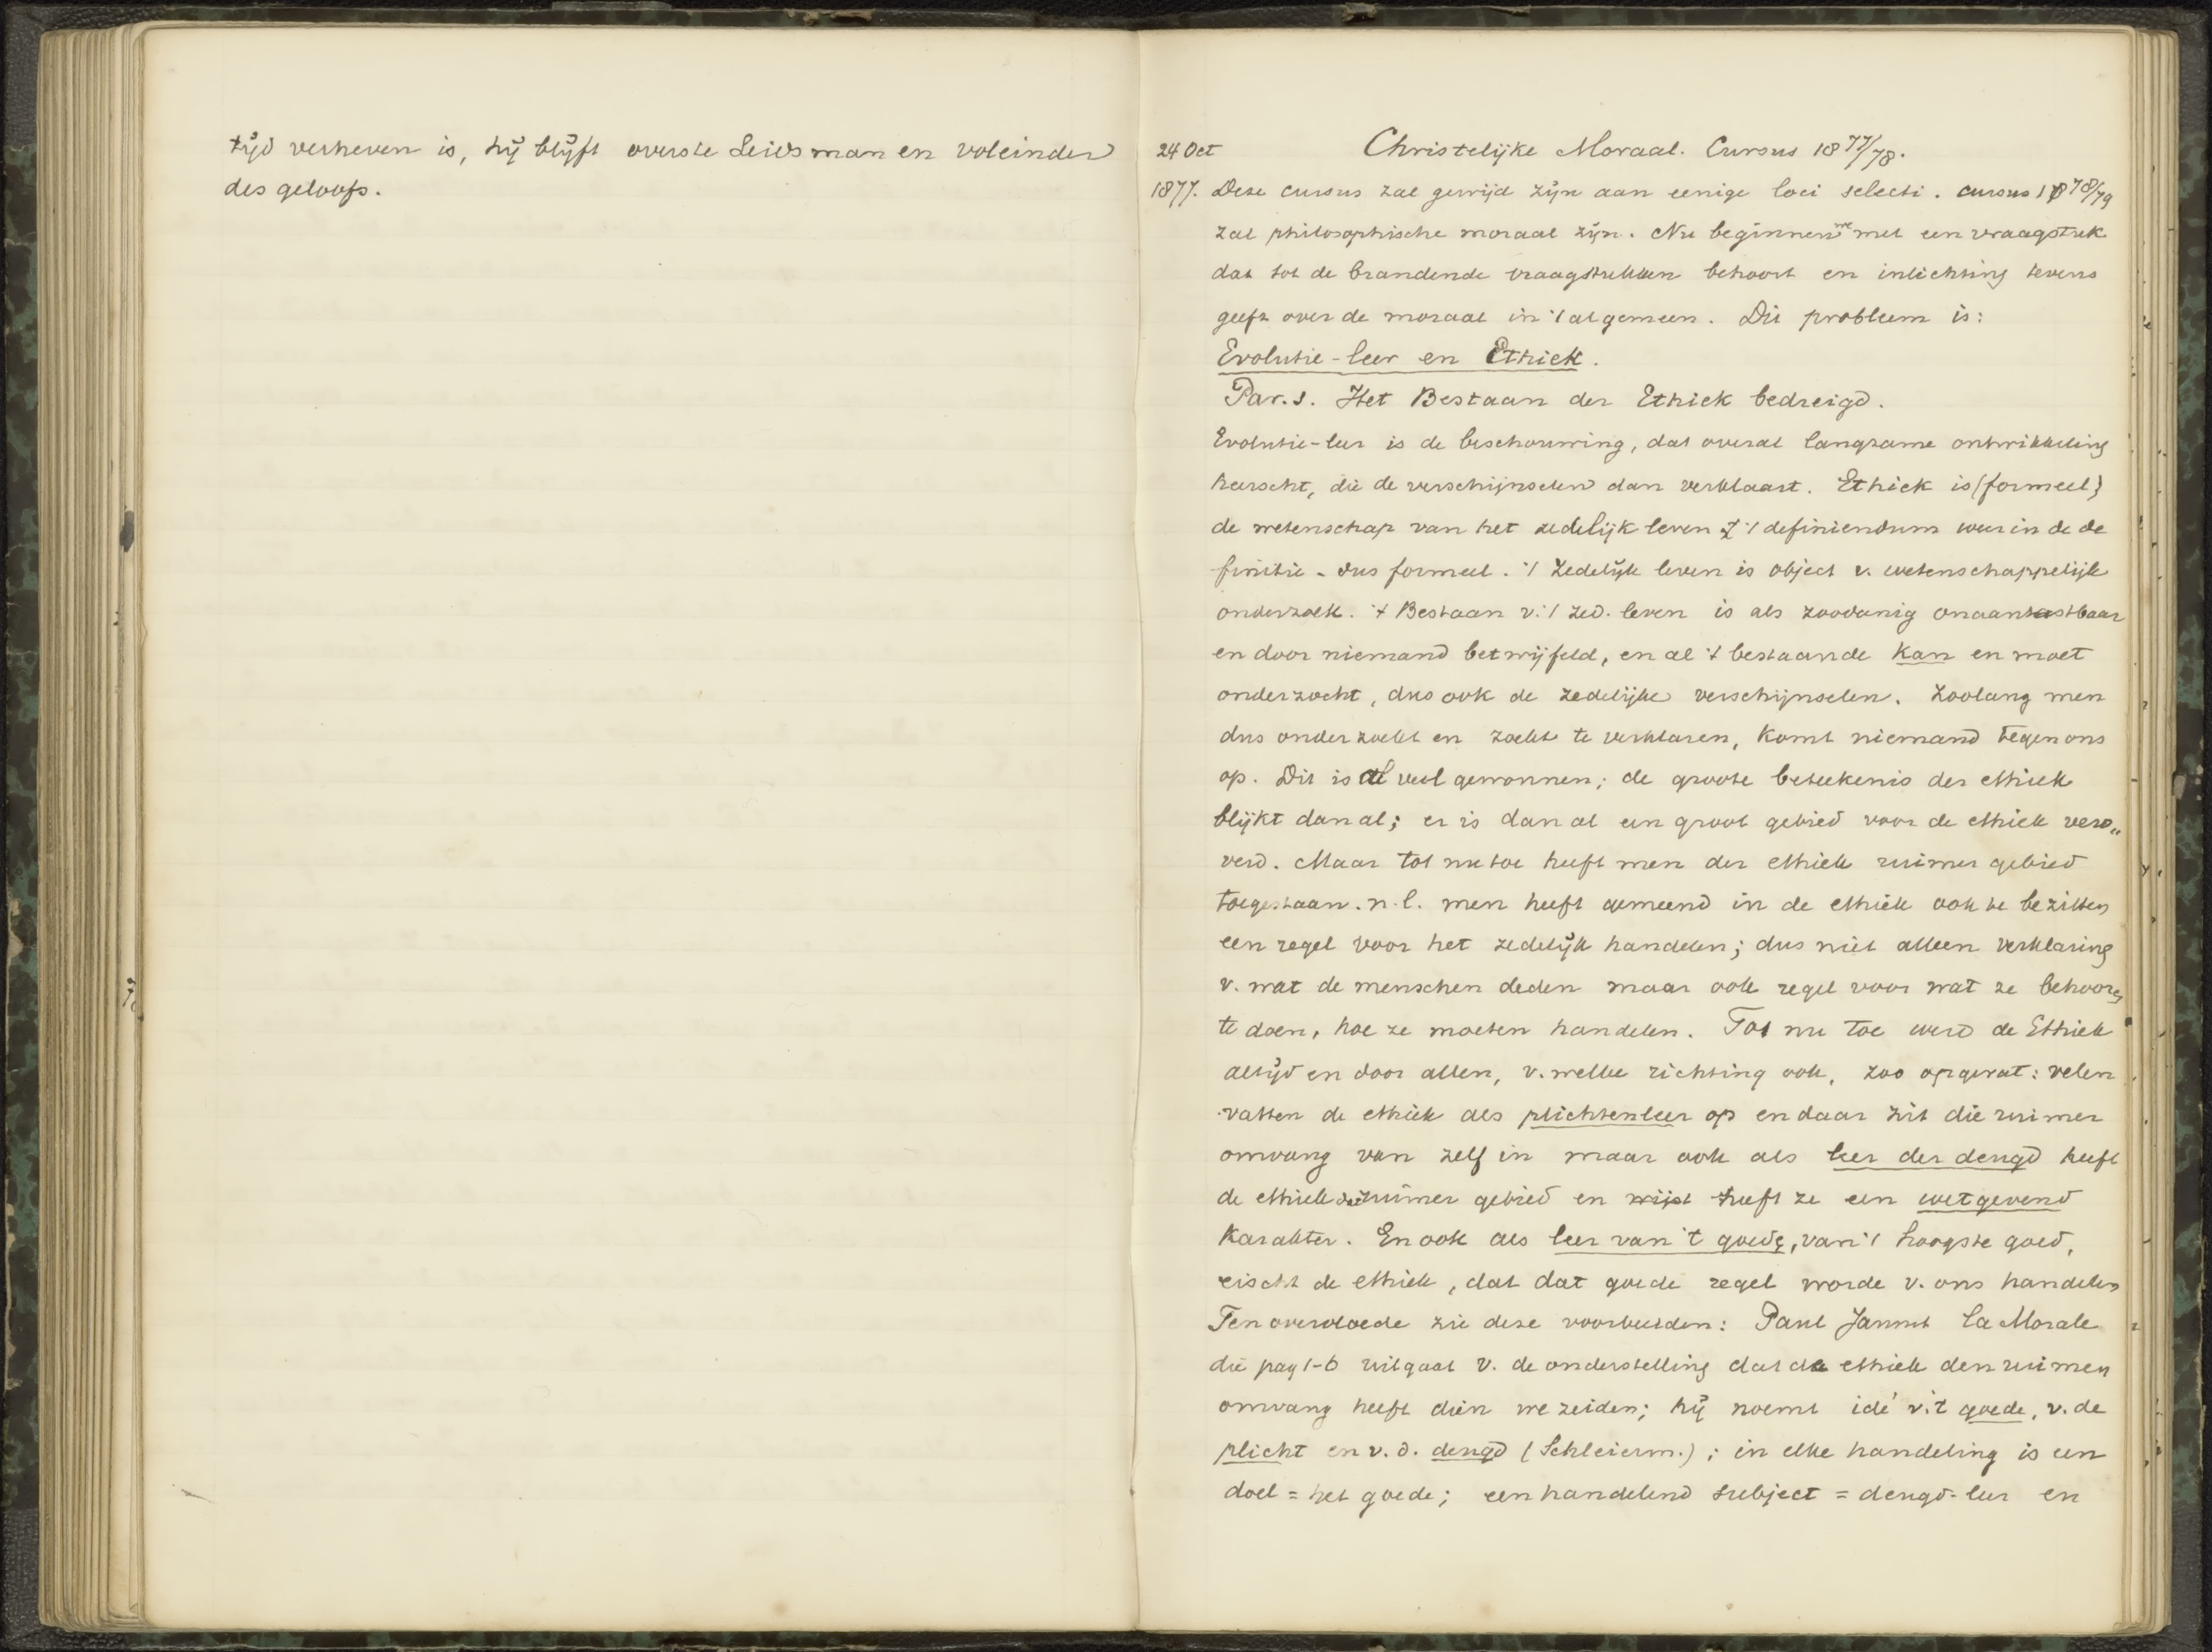 tijd verheven is, hij blijft overste Leidsman en voleinder
des geloofs.
24 Oct Christelijke Moraal. Cursus 1877/78.
1877. Deze cursus zal gewijd zijn aan eenige loci selecti. cursus 1878/79
zal philosophische moraal zijn. Nu beginnen we met een vraagstuk
dat tot de brandende vraagstukken behoort en inlichting tevens
geeft over de moraal in 't algemeen. Dit probleem is:
Evolutie-leer en Ethiek.
Par. 1. Het Bestaan der Ethiek bedreigd.
Evolutie-leer is de beschouwing, dat overal langzame ontwikkeling
heerscht, die de verschijnselen dan verklaart. Ethiek is (formeel)
de wetenschap van het zedelijk leven 't definiendum weer in de de
finitie - dus formeel. 't Zedelijk leven is object v. wetenschappelijk
onderzoek. 't Bestaan v. 't zed. leven is als zoodanig onaantastbaar
en door niemand betwijfeld, en al 't bestaande kan en moet
onderzocht, dus ook de zedelijke verschijnselen. Zoolang men
dus onderzoekt en zoekt te verklaren, komt niemand tegen ons
op. Dit is al veel gewonnen; de groote beteekenis der ethiek
blijkt dan al; er is dan al een groot gebied voor de ethiek vero„
verd. Maar tot nu toe heeft men der ethiek ruimer gebied
toegestaan. n.l. men heeft gemeend in de ethiek ook te bezitten
een regel voor het zedelijk handelen; dus niet alleen verklaring
v. wat de menschen deden maar ook regel voor wat ze behooren
te doen, hoe ze moeten handelen. Tot nu toe werd de Ethiek
altijd en door allen, v. welke richting ook, zoo opgevat: velen
vatten de ethiek als plichtenleer op en daar zit die ruimer
omvang van zelf in maar ook als leer der deugd heeft
de ethiek dat ruimer gebied en wijst heeft ze een wetgevend
Karakter. En ook als leer van 't goede, van 't hoogste goed,
eischt de ethiek, dat dat goede regel worde v. ons handelen
Ten overvloede zie deze voorbeelden: Paul Jannet La Morale
die pag 1-6 uitgaat v. de onderstelling dat de ethiek den ruimen
omvang heeft dien we zeiden; hij noemt idé v. 't goede, v. de
plicht en v. d. deugd (Schleierm.); in elke handeling is een
doel = het goede; een handelend subject = deugd-leer en